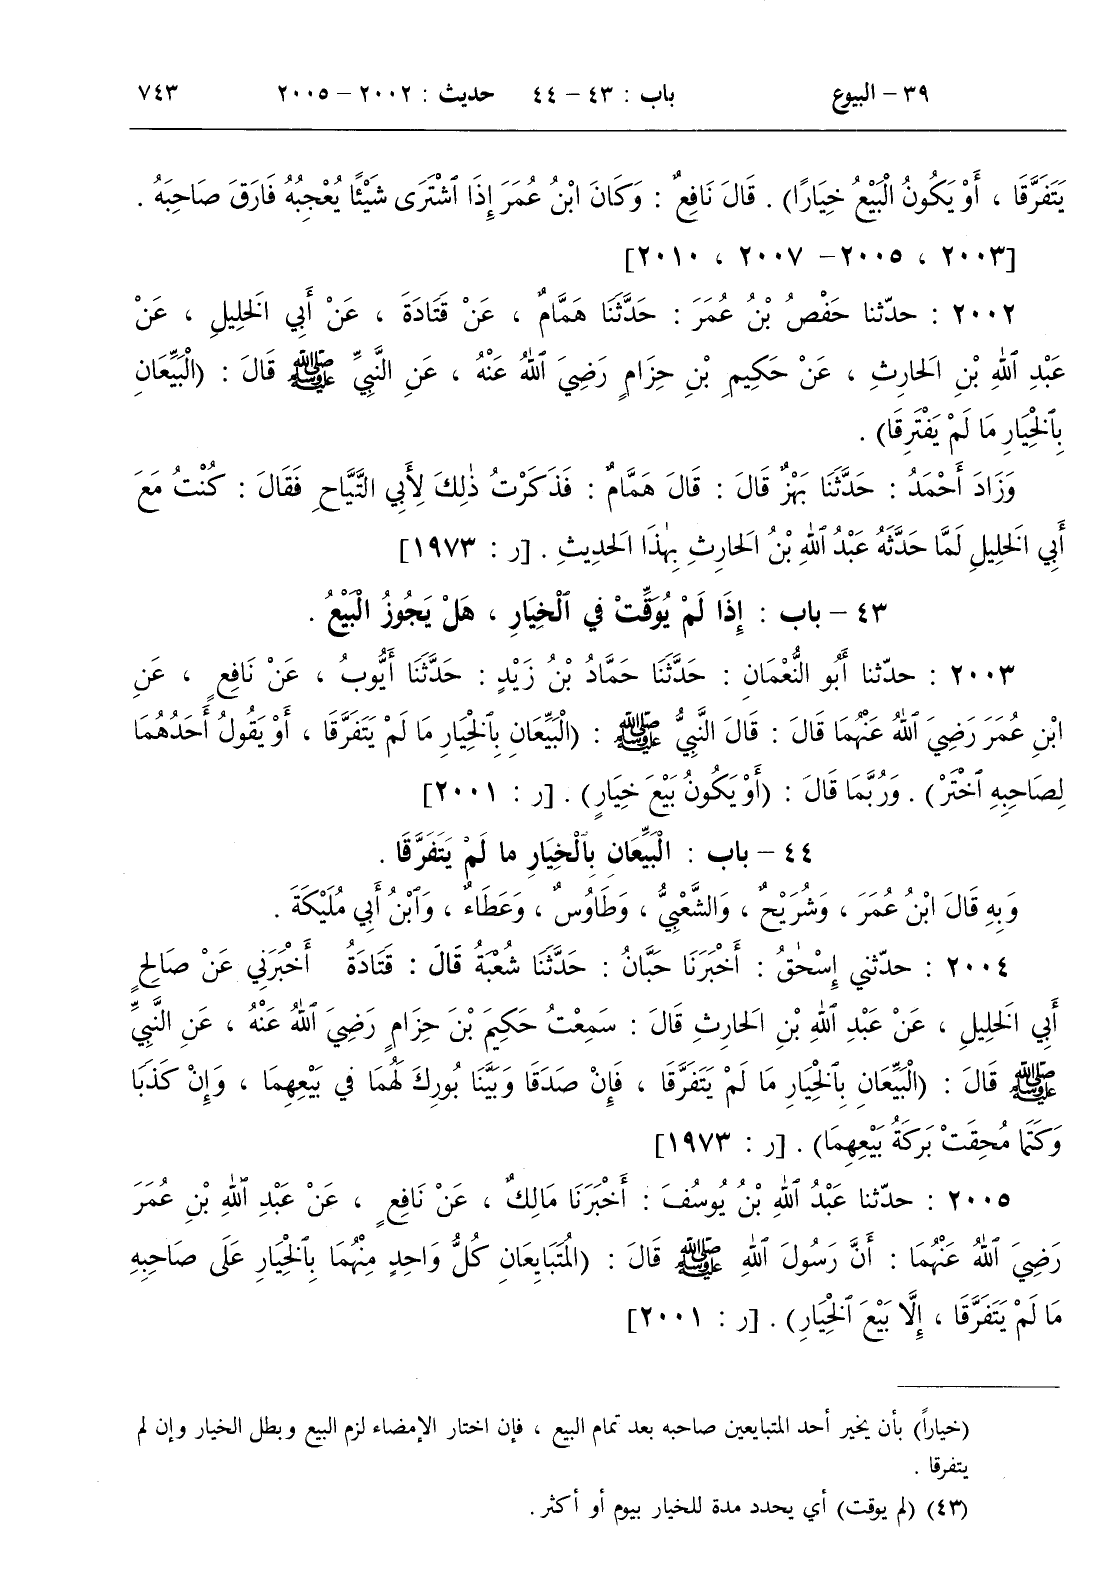 ٣٩ - البيوع باب : ٤٣ - ٤٤ حديث : ٢٠٠٢ - ٢٠٠٥ ٧٤٣
يَتَفَرَّقَا ، أَوْ يَكُونُ الْبَيْعُ خِيَارًا) . قَالَ نَافِعٌ : وَكَانَ ابْنُ عُمَرَ إِذَا ٱشْتَرَى شَيْئًا يُعْجِبُهُ فَارَقَ صَاحِبَهُ .
[٢٠٠٣ ، ٢٠٠٥ - ٢٠٠٧ ، ٢٠١٠]
٢٠٠٢ : حدّثنا حَفْصُ بْنُ عُمَرَ : حَدَّثَنَا هَمَّامٌ ، عَنْ قَتَادَةَ ، عَنْ أَبِي الخَلِيلِ ، عَنْ
عَبْدِ ٱللهِ بْنِ الحَارِثِ ، عَنْ حَكِيمِ بْنِ حِزَامٍ رَضِيَ ٱللهُ عَنْهُ ، عَنِ النَّبِيِّ ﷺ قَالَ : (الْبَيِّعَانِ
بِٱلْخِيَارِ مَا لَمْ يَفْتَرِقَا) .
وَزَادَ أَحْمَدُ : حَدَّثَنَا بَهْزٌ قَالَ : قَالَ هَمَّامٌ : فَذَكَرْتُ ذٰلِكَ لِأَبِي التَّيَّاحِ فَقَالَ : كُنْتُ مَعَ
أَبِي الخَلِيلِ لَمَّا حَدَّثَهُ عَبْدُ ٱللهِ بْنُ الحَارِثِ بِهٰذَا الحَدِيثِ . [ر : ١٩٧٣]
٤٣ - باب : إِذَا لَمْ يُوَقِّتْ في ٱلْخِيَارِ ، هَلْ يَجُوزُ الْبَيْعُ .
٢٠٠٣ : حدّثنا أَبُو النُّعْمَانِ : حَدَّثَنَا حَمَّادُ بْنُ زَيْدٍ : حَدَّثَنَا أَيُّوبُ ، عَنْ نَافِعٍ ، عَنِ
ابْنِ عُمَرَ رَضِيَ ٱللهُ عَنْهُمَا قَالَ : قَالَ النَّبِيُّ ﷺ : (الْبَيِّعَانِ بِٱلْخِيَارِ مَا لَمْ يَتَفَرَّقَا ، أَوْ يَقُولُ أَحَدُهُمَا
لِصَاحِبِهِ ٱخْتَرْ) . وَرُبَّمَا قَالَ : (أَوْ يَكُونُ بَيْعَ خِيَارٍ) . [ر : ٢٠٠١]
٤٤ - باب : الْبَيِّعَانِ بِٱلْخِيَارِ ما لَمْ يَتَفَرَّقَا .
وَبِهِ قَالَ ابْنُ عُمَرَ ، وَشُرَيْحٌ ، وَالشَّعْبِيُّ ، وَطَاوُسٌ ، وَعَطَاءٌ ، وَٱبْنُ أَبِي مُلَيْكَةَ .
٢٠٠٤ : حدّثني إِسْحٰقُ : أَخْبَرَنَا حَبَّانُ : حَدَّثَنَا شُعْبَةُ قَالَ : قَتَادَةُ أَخْبَرَنِي عَنْ صَالِحٍ
أَبِي الخَلِيلِ ، عَنْ عَبْدِ ٱللهِ بْنِ الحَارِثِ قَالَ : سَمِعْتُ حَكِيمَ بْنَ حِزَامٍ رَضِيَ ٱللهُ عَنْهُ ، عَنِ النَّبِيِّ
ﷺ قَالَ : (الْبَيِّعَانِ بِٱلْخِيَارِ مَا لَمْ يَتَفَرَّقَا ، فَإِنْ صَدَقَا وَبَيَّنَا بُورِكَ لَهُمَا في بَيْعِهِمَا ، وَإِنْ كَذَبَا
وَكَتَمَا مُحِقَتْ بَرَكَةُ بَيْعِهِمَا) . [ر : ١٩٧٣]
٢٠٠٥ : حدّثنا عَبْدُ ٱللهِ بْنُ يُوسُفَ : أَخْبَرَنَا مَالِكٌ ، عَنْ نَافِعٍ ، عَنْ عَبْدِ ٱللهِ بْنِ عُمَرَ
رَضِيَ ٱللهُ عَنْهُمَا : أَنَّ رَسُولَ ٱللهِ ﷺ قَالَ : (الْمُتَبَايِعَانِ كُلُّ وَاحِدٍ مِنْهُمَا بِٱلْخِيَارِ عَلَى صَاحِبِهِ
مَا لَمْ يَتَفَرَّقَا ، إِلَّا بَيْعَ ٱلْخِيَارِ) . [ر : ٢٠٠١]
(خياراً) بأن يخير أحد المتبايعين صاحبه بعد تمام البيع ، فإن اختار الإمضاء لزم البيع وبطل الخيار وإن لم
يتفرقا .
(٤٣) (لم يوقت) أي يحدد مدة للخيار بيوم أو أكثر .